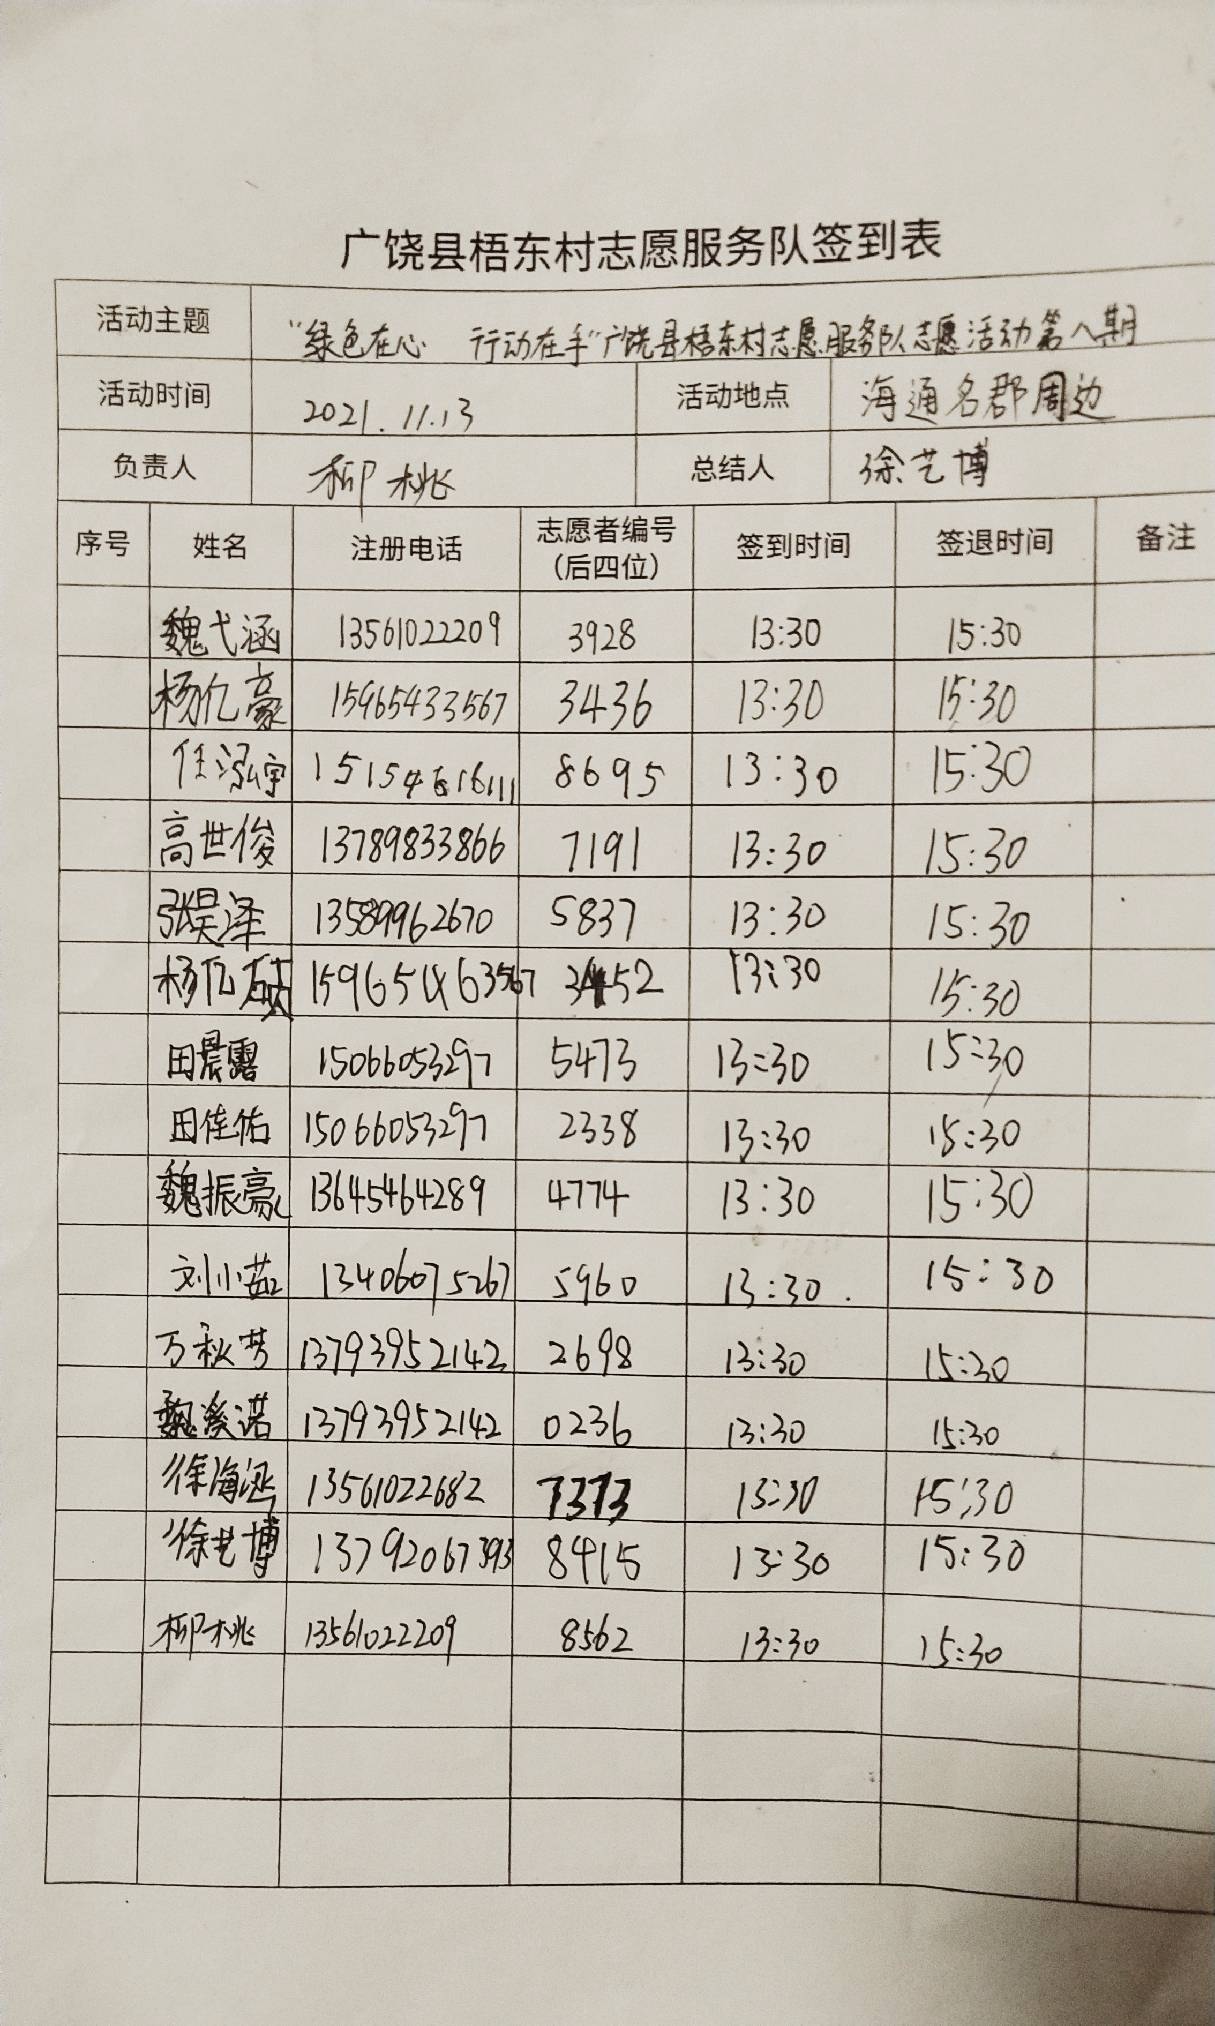 广饶县梧东村志愿服务队签到表
活动主题 “绿色在心 行动在手”广饶县梧东村志愿服务队志愿活动第八期
活动时间 2021.11.13 活动地点 海通名郡周边
负责人 柳桃 总结人 徐艺博
序号 姓名 注册电话 志愿者编号（后四位） 签到时间 签退时间 备注
魏弋涵 13561022209 3928 13:30 15:30
杨亿豪 15965433567 3436 13:30 15:30
任泓宇 8695 13:30 15:30
高世俊 13789833866 7191 13:30 15:30
张昊泽 13589962670 5837 13:30 15:30
杨亿硕 13:30 15:30
田晨露 15066053297 5473 13:30 15:30
田佳佑 15066053297 2338 13:30 15:30
魏振豪 13645464289 4774 13:30 15:30
刘小茹 13406075267 5960 13:30 15:30
万秋芳 13793952142 2698 13:30 15:30
魏溪诺 13793952142 0236 13:30 15:30
徐海涵 13561022682 7373 13:30 15:30
徐艺博 13792067393 8415 13:30 15:30
柳桃 13561022209 8562 13:30 15:30